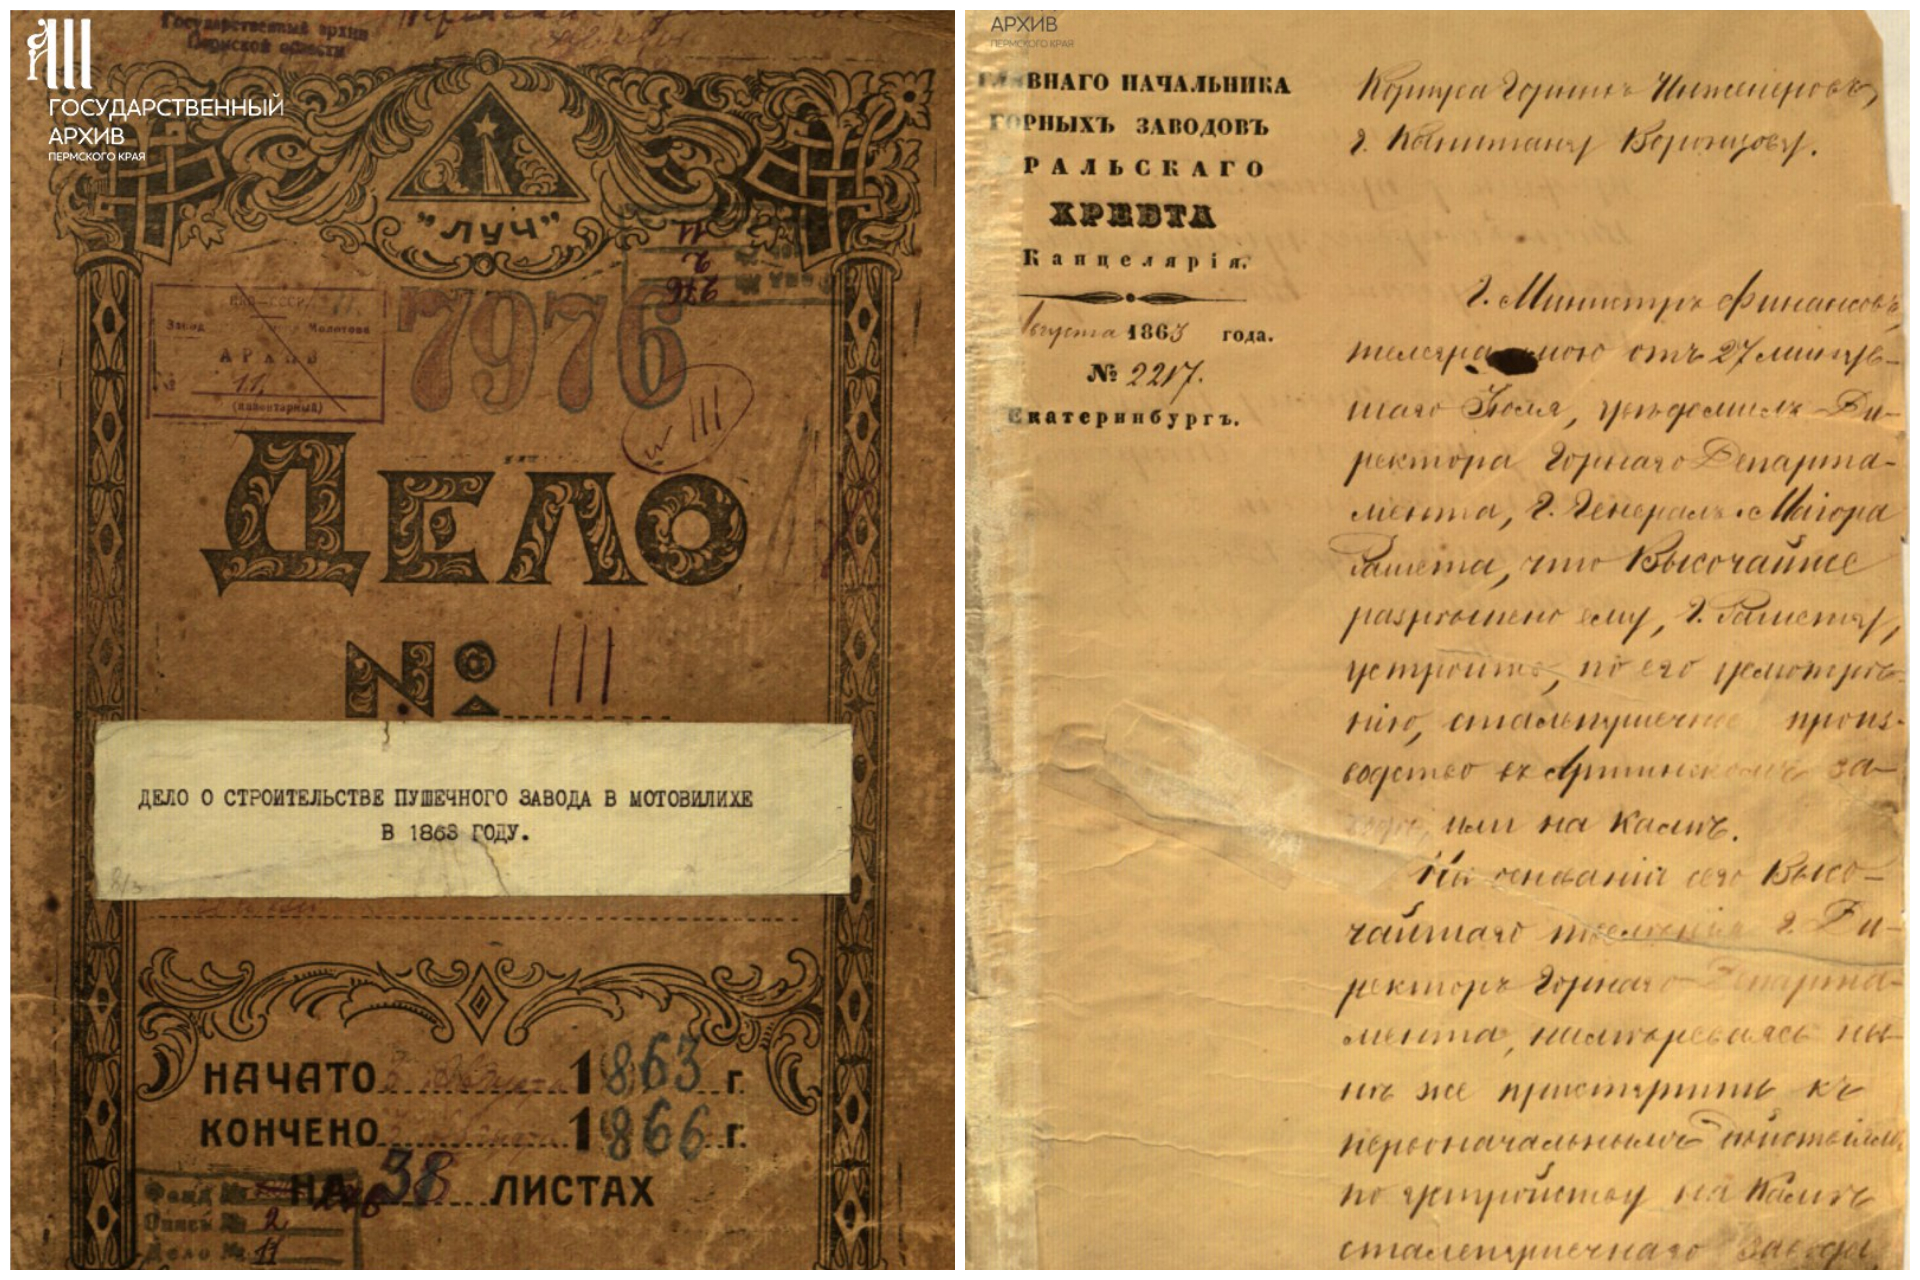 Государственный архив
Пермской области
ГОСУДАРСТВЕННЫЙ
АРХИВ
ПЕРМСКОГО КРАЯ
"ЛУЧ"
11
2
276
НКО—СССР
Завод Молотова
АРХИВ
№ 11
(инвентарный)
7976
III
ДЕЛО
№ III
ДЕЛО О СТРОИТЕЛЬСТВЕ ПУШЕЧНОГО ЗАВОДА В МОТОВИЛИХЕ
В 1863 ГОДУ.
НАЧАТО августа 1863 г.
КОНЧЕНО 1866 г.
НА 38 ЛИСТАХ
Фонд №
Опись № 2
Дело № 11
АРХИВ
ПЕРМСКОГО КРАЯ
ГЛАВНАГО НАЧАЛЬНИКА
ГОРНЫХЪ ЗАВОДОВЪ
РАЛЬСКАГО
ХРЕБТА
Канцелярія.
Августа 1863 года.
№ 2217.
Екатеринбургъ.
Корпуса Горныхъ Инженеровъ,
г. Капитану Воронцову.
Г. Министръ Финансовъ,
телеграммою отъ 27 минув-
шаго Іюля, увѣдомилъ Ди-
ректора Горнаго Департа-
мента, Г. Генералъ-Маіора
Рашета, что Высочайше
разрѣшено ему, Г. Рашету,
устроить, по его усмотрѣ-
нію, сталепушечное произ-
водство въ Артинскомъ за-
водѣ, или на Камѣ.
На основаніи сего Высо-
чайшаго повелѣнія г. Ди-
ректоръ Горнаго Департа-
мента, намѣреваясь ны-
нѣ же приступить къ
первоначальнымъ дѣйствіямъ
по устройству на Камѣ
сталепушечнаго завода,